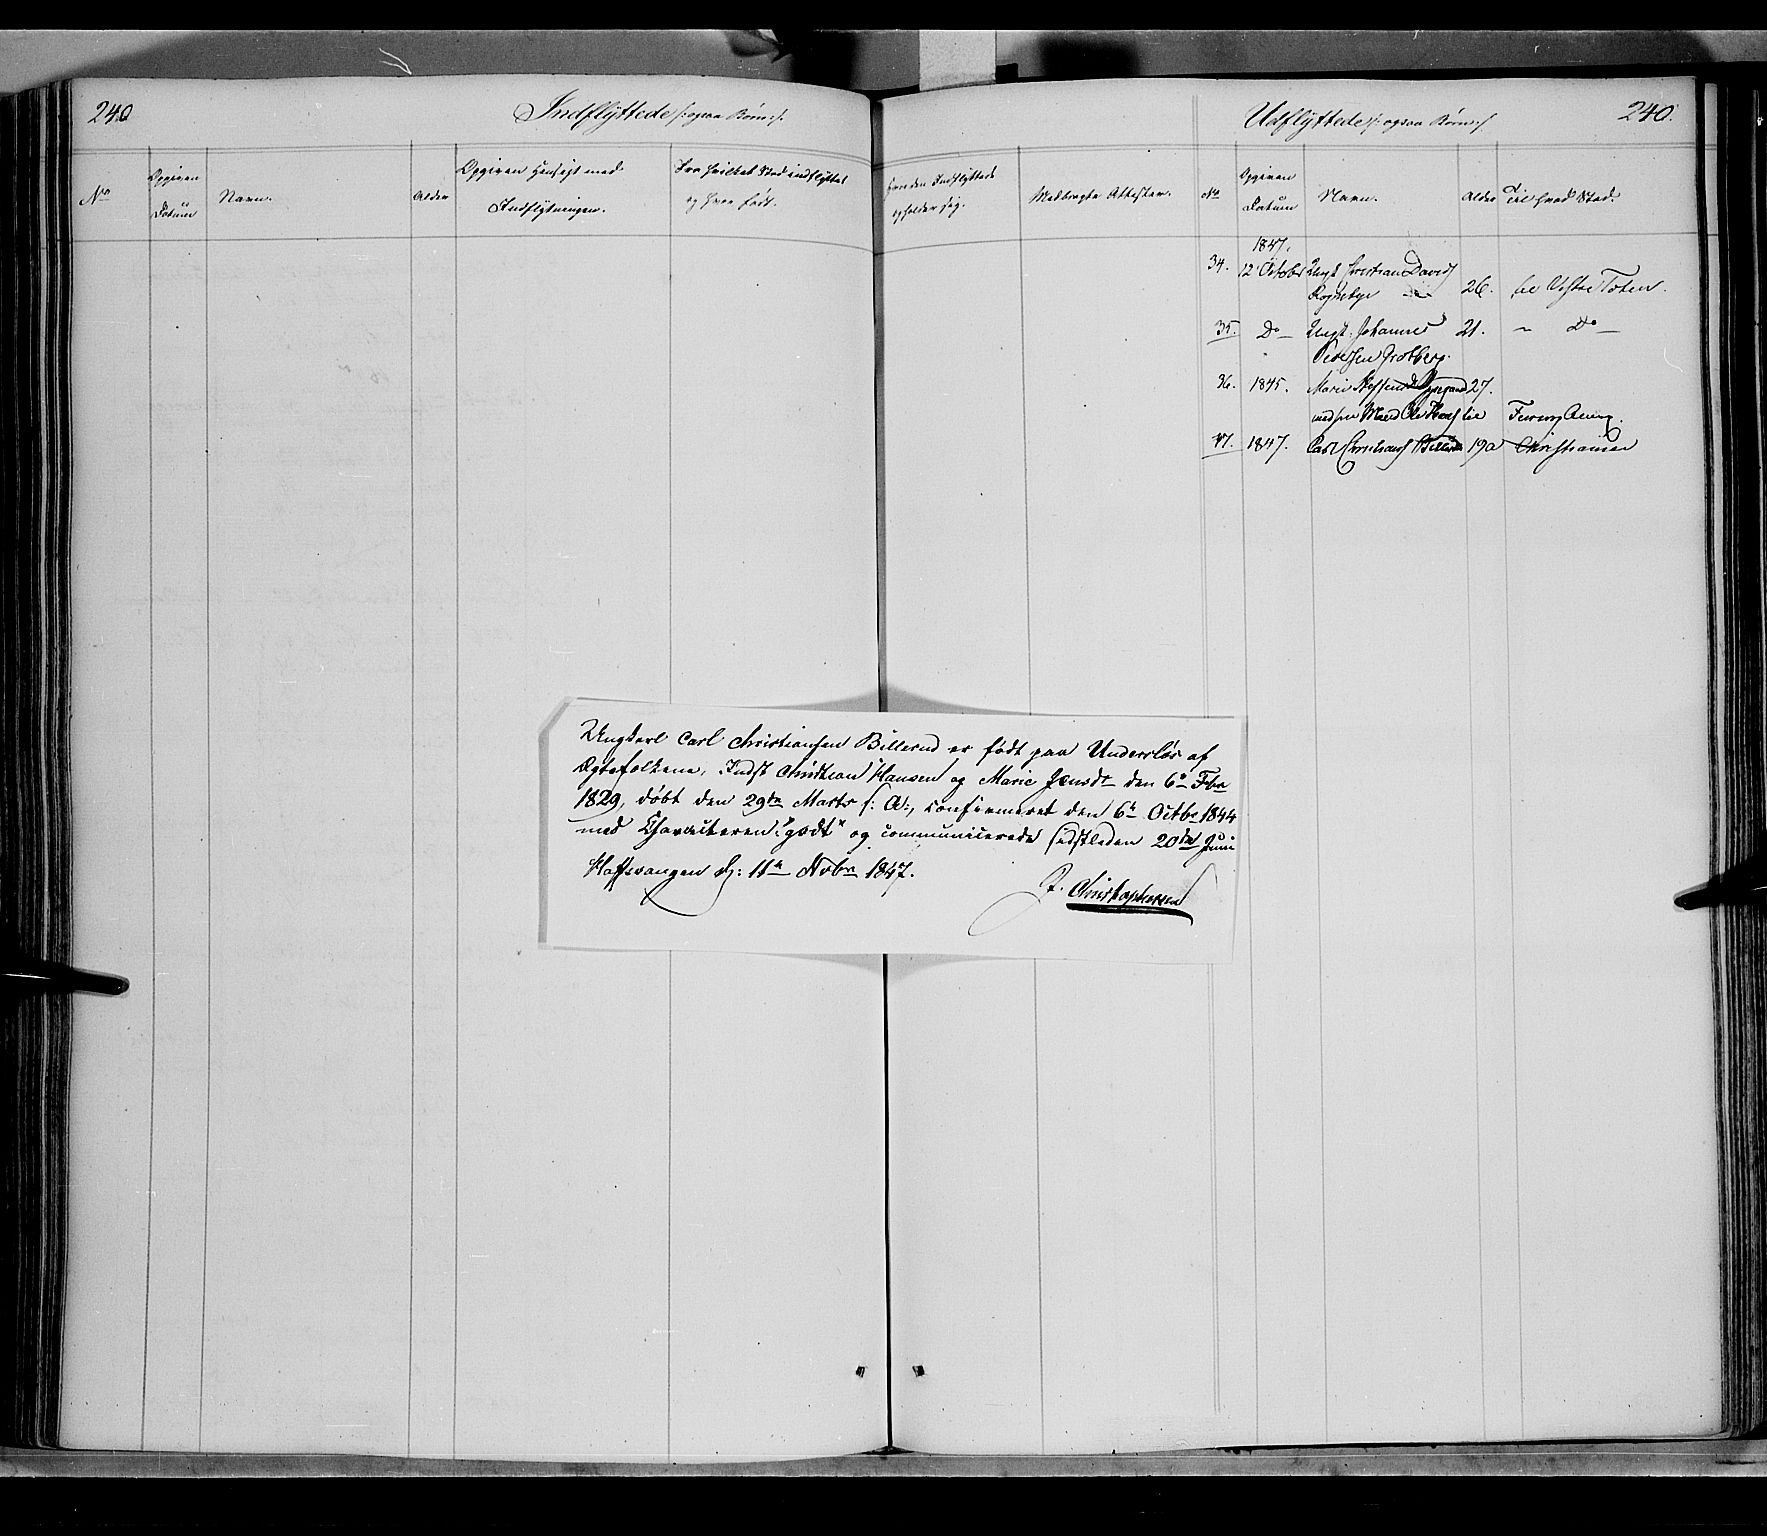 240
Indflyttede /: ogsaa Børn :/
Udflyttede /: ogsaa Børn :/
240.
No
Opgiven Datum
Navn.
Alder
Opgiven Hensigt med Indflytningen.
Fra hvilket Sted indflyttet og hvor født.
hvor den Indflyttede opholder sig.
Medbragte Attester.
No
Opgiven Datum
Navn.
Alder
Til hvad Sted.
1847.
34. 12 October Ungk. Christian Davids
Rognebye 26. til Vestre Toten.
35. Do Ungk. Johannes 21. " Do
Pedersen Grotberg.
36. 1845. Marie 27.
med sin Mand Ole til
37. 1847. Carl Christians Billerud 19 a Christiania
Ungkarl Carl Christiansen Billerud er født paa Underslös af
Ægtefolkene, Indst Christian Hansen og Marie Jensdr den 6te Fbr
1829, døbt den 29de Marts s: A:, confirmeret den 6te Octbr 1844
med Characteren: "godt" og communicerede sidstleden 20de Juni
Hoffsvangen d: 11te Novbr 1847.
J. Christophersen